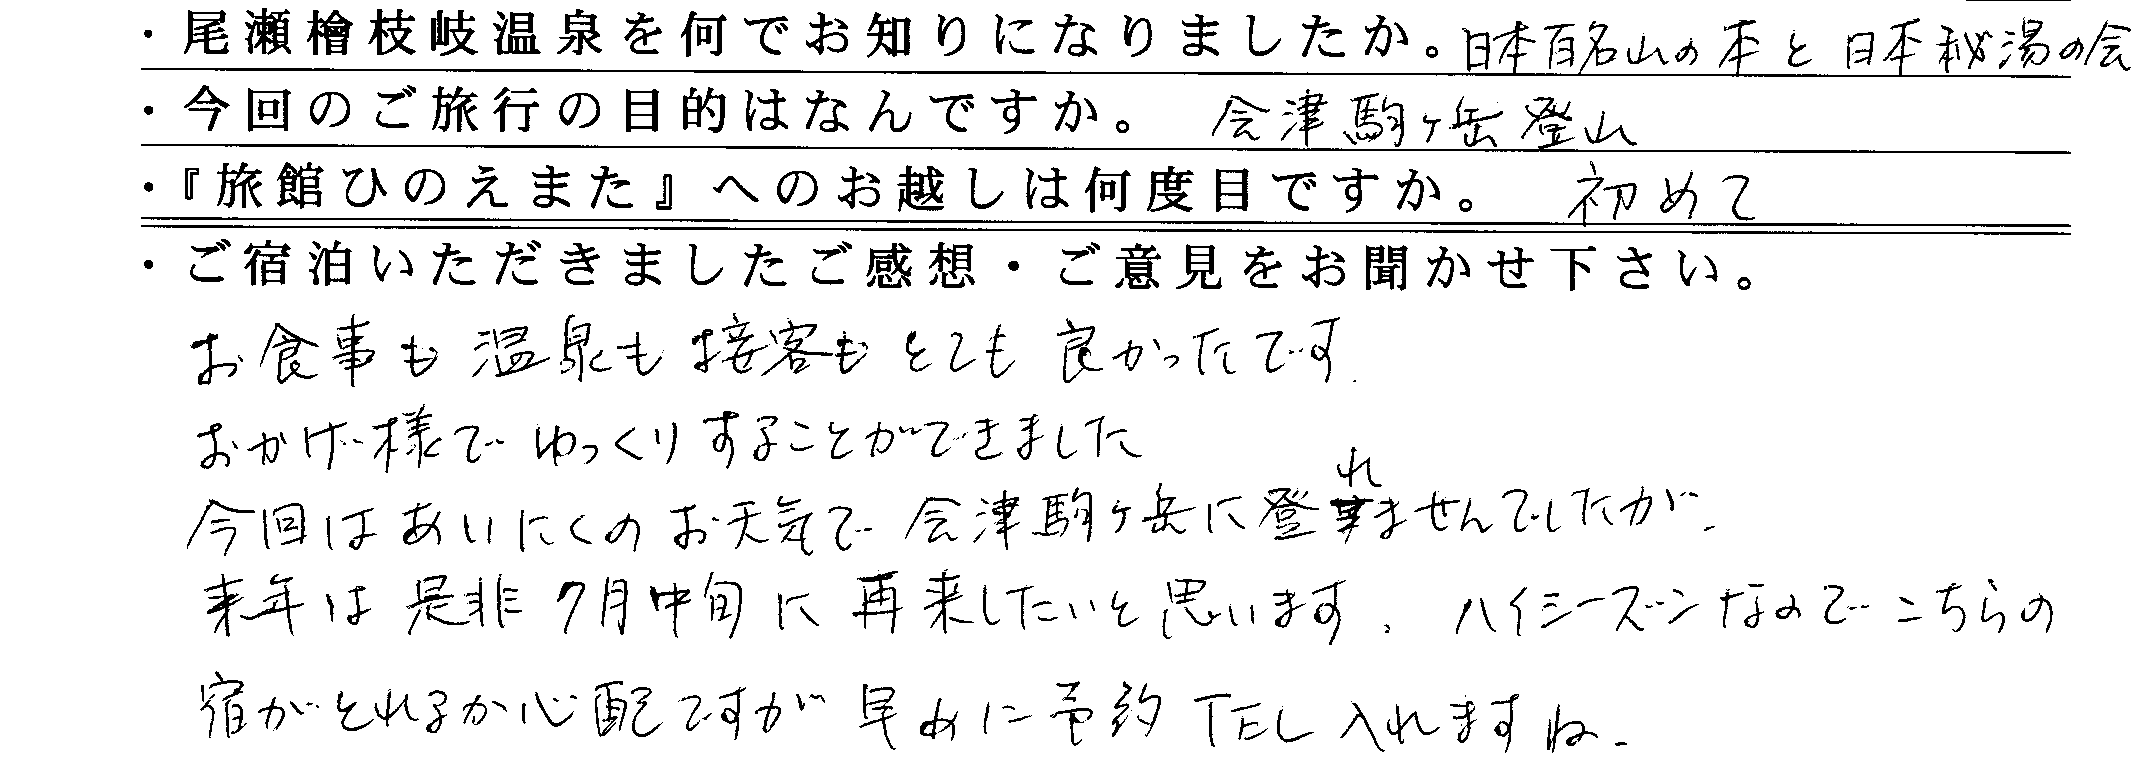 ・尾瀬檜枝岐温泉を何でお知りになりましたか。日本百名山の本と日本秘湯の会
・今回のご旅行の目的はなんですか。 会津駒ヶ岳登山
・『旅館ひのえまた』へのお越しは何度目ですか。 初めて
・ご宿泊いただきましたご感想・ご意見をお聞かせ下さい。
お食事も温泉も接客もとても良かったです.
おかげ様でゆっくりすることができました
今回はあいにくのお天気で会津駒ヶ岳に登れませんでしたが、
来年は是非7月中旬に再来したいと思います。ハイシーズンなのでこちらの
宿がとれるか心配ですが早めに予約TEL入れますね。